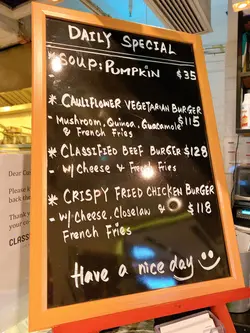 DAILY SPECIAL
* SOUP: PUMPKIN $35
-
* CAULIFLOWER VEGETARIAN BURGER
- Mushroom, Quinoa, Guacamole $115
& French Fries
* CLASSIFIED BEEF BURGER $128
- w/ Cheese & French Fries
* CRISPY FRIED CHICKEN BURGER
- w/ Cheese, Closelaw & $118
French Fries
Have a nice day
Dear Cu
Please
back the
Thank
CLASS